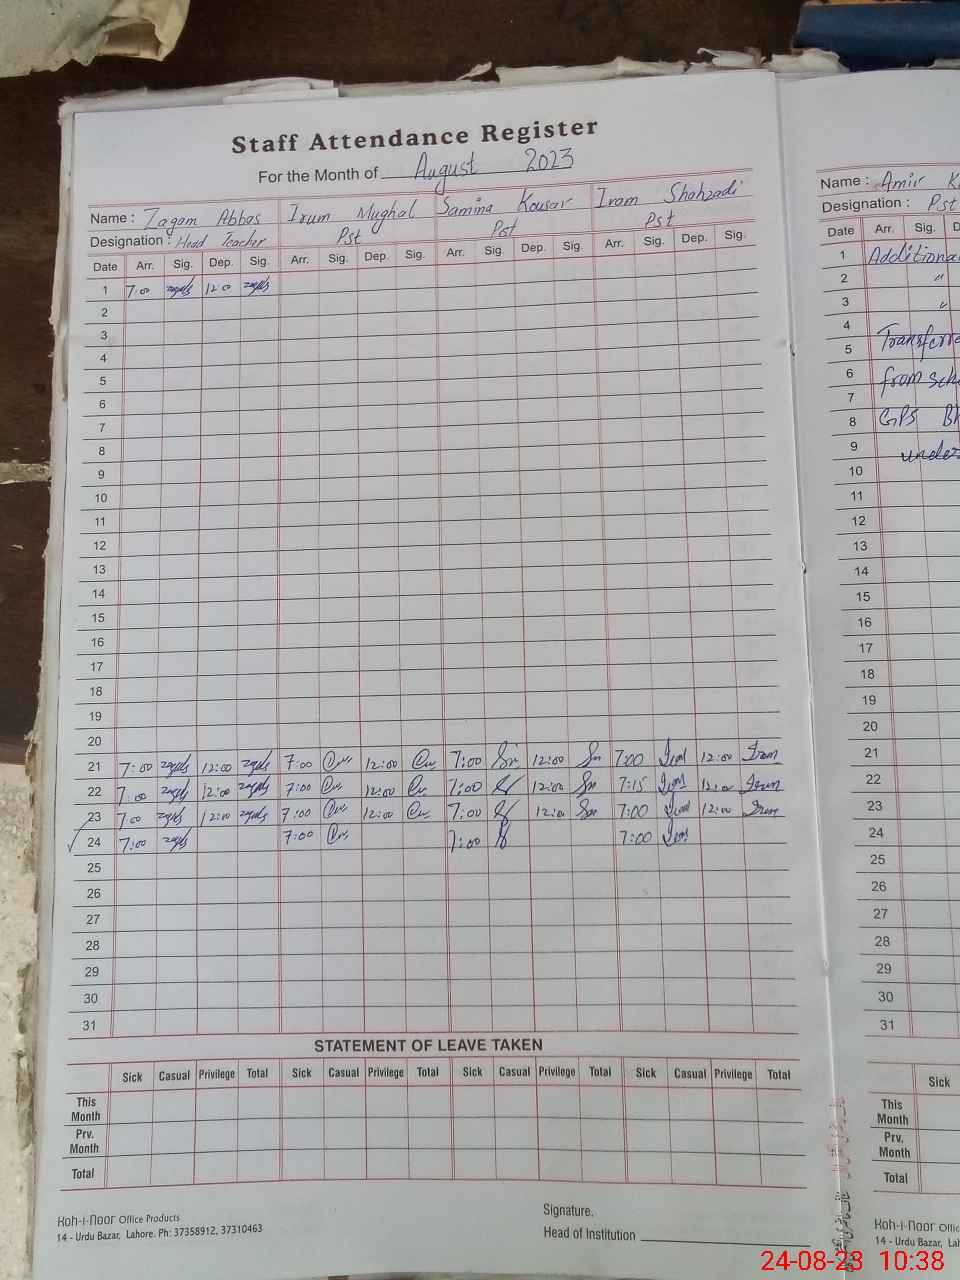 Staff Attendance Register
For the Month of August 2023
Name : Zagam Abbas Irum Mughal Samina Kousar Iram Shahzadi
Designation : Head Teacher Pst Pst Pst
Date Arr. Sig. Dep. Sig. Arr. Sig. Dep. Sig. Arr. Sig. Dep. Sig. Arr. Sig. Dep. Sig.
1 7:00 12:00
2
3
4
5
6
7
8
9
10
11
12
13
14
15
16
17
18
19
20
21 7:00 12:00 7:00 12:00 7:00 12:00 7:00 12:00
22 7:00 12:00 7:00 12:00 7:00 12:00 7:15 12:00
23 7:00 12:00 7:00 12:00 7:00 12:00 7:00 12:00
24 7:00 7:00 7:00 7:00
25
26
27
28
29
30
31
STATEMENT OF LEAVE TAKEN
Sick Casual Privilege Total Sick Casual Privilege Total Sick Casual Privilege Total Sick Casual Privilege Total
This Month
Prv. Month
Total
Koh-i-Noor Office Products
14 - Urdu Bazar, Lahore. Ph: 37358912, 37310463
Signature,
Head of Institution
Name : Amir
Designation : Pst
Date Arr. Sig.
1 Additional
2 "
3 "
4
5 Transferre
6 from sch
7
8 GPS
9 under
10
11
12
13
14
15
16
17
18
19
20
21
22
23
24
25
26
27
28
29
30
31
Sick
This Month
Prv. Month
Total
Koh-i-Noor Office
14 - Urdu Bazar, Lah
24-08-23 10:38